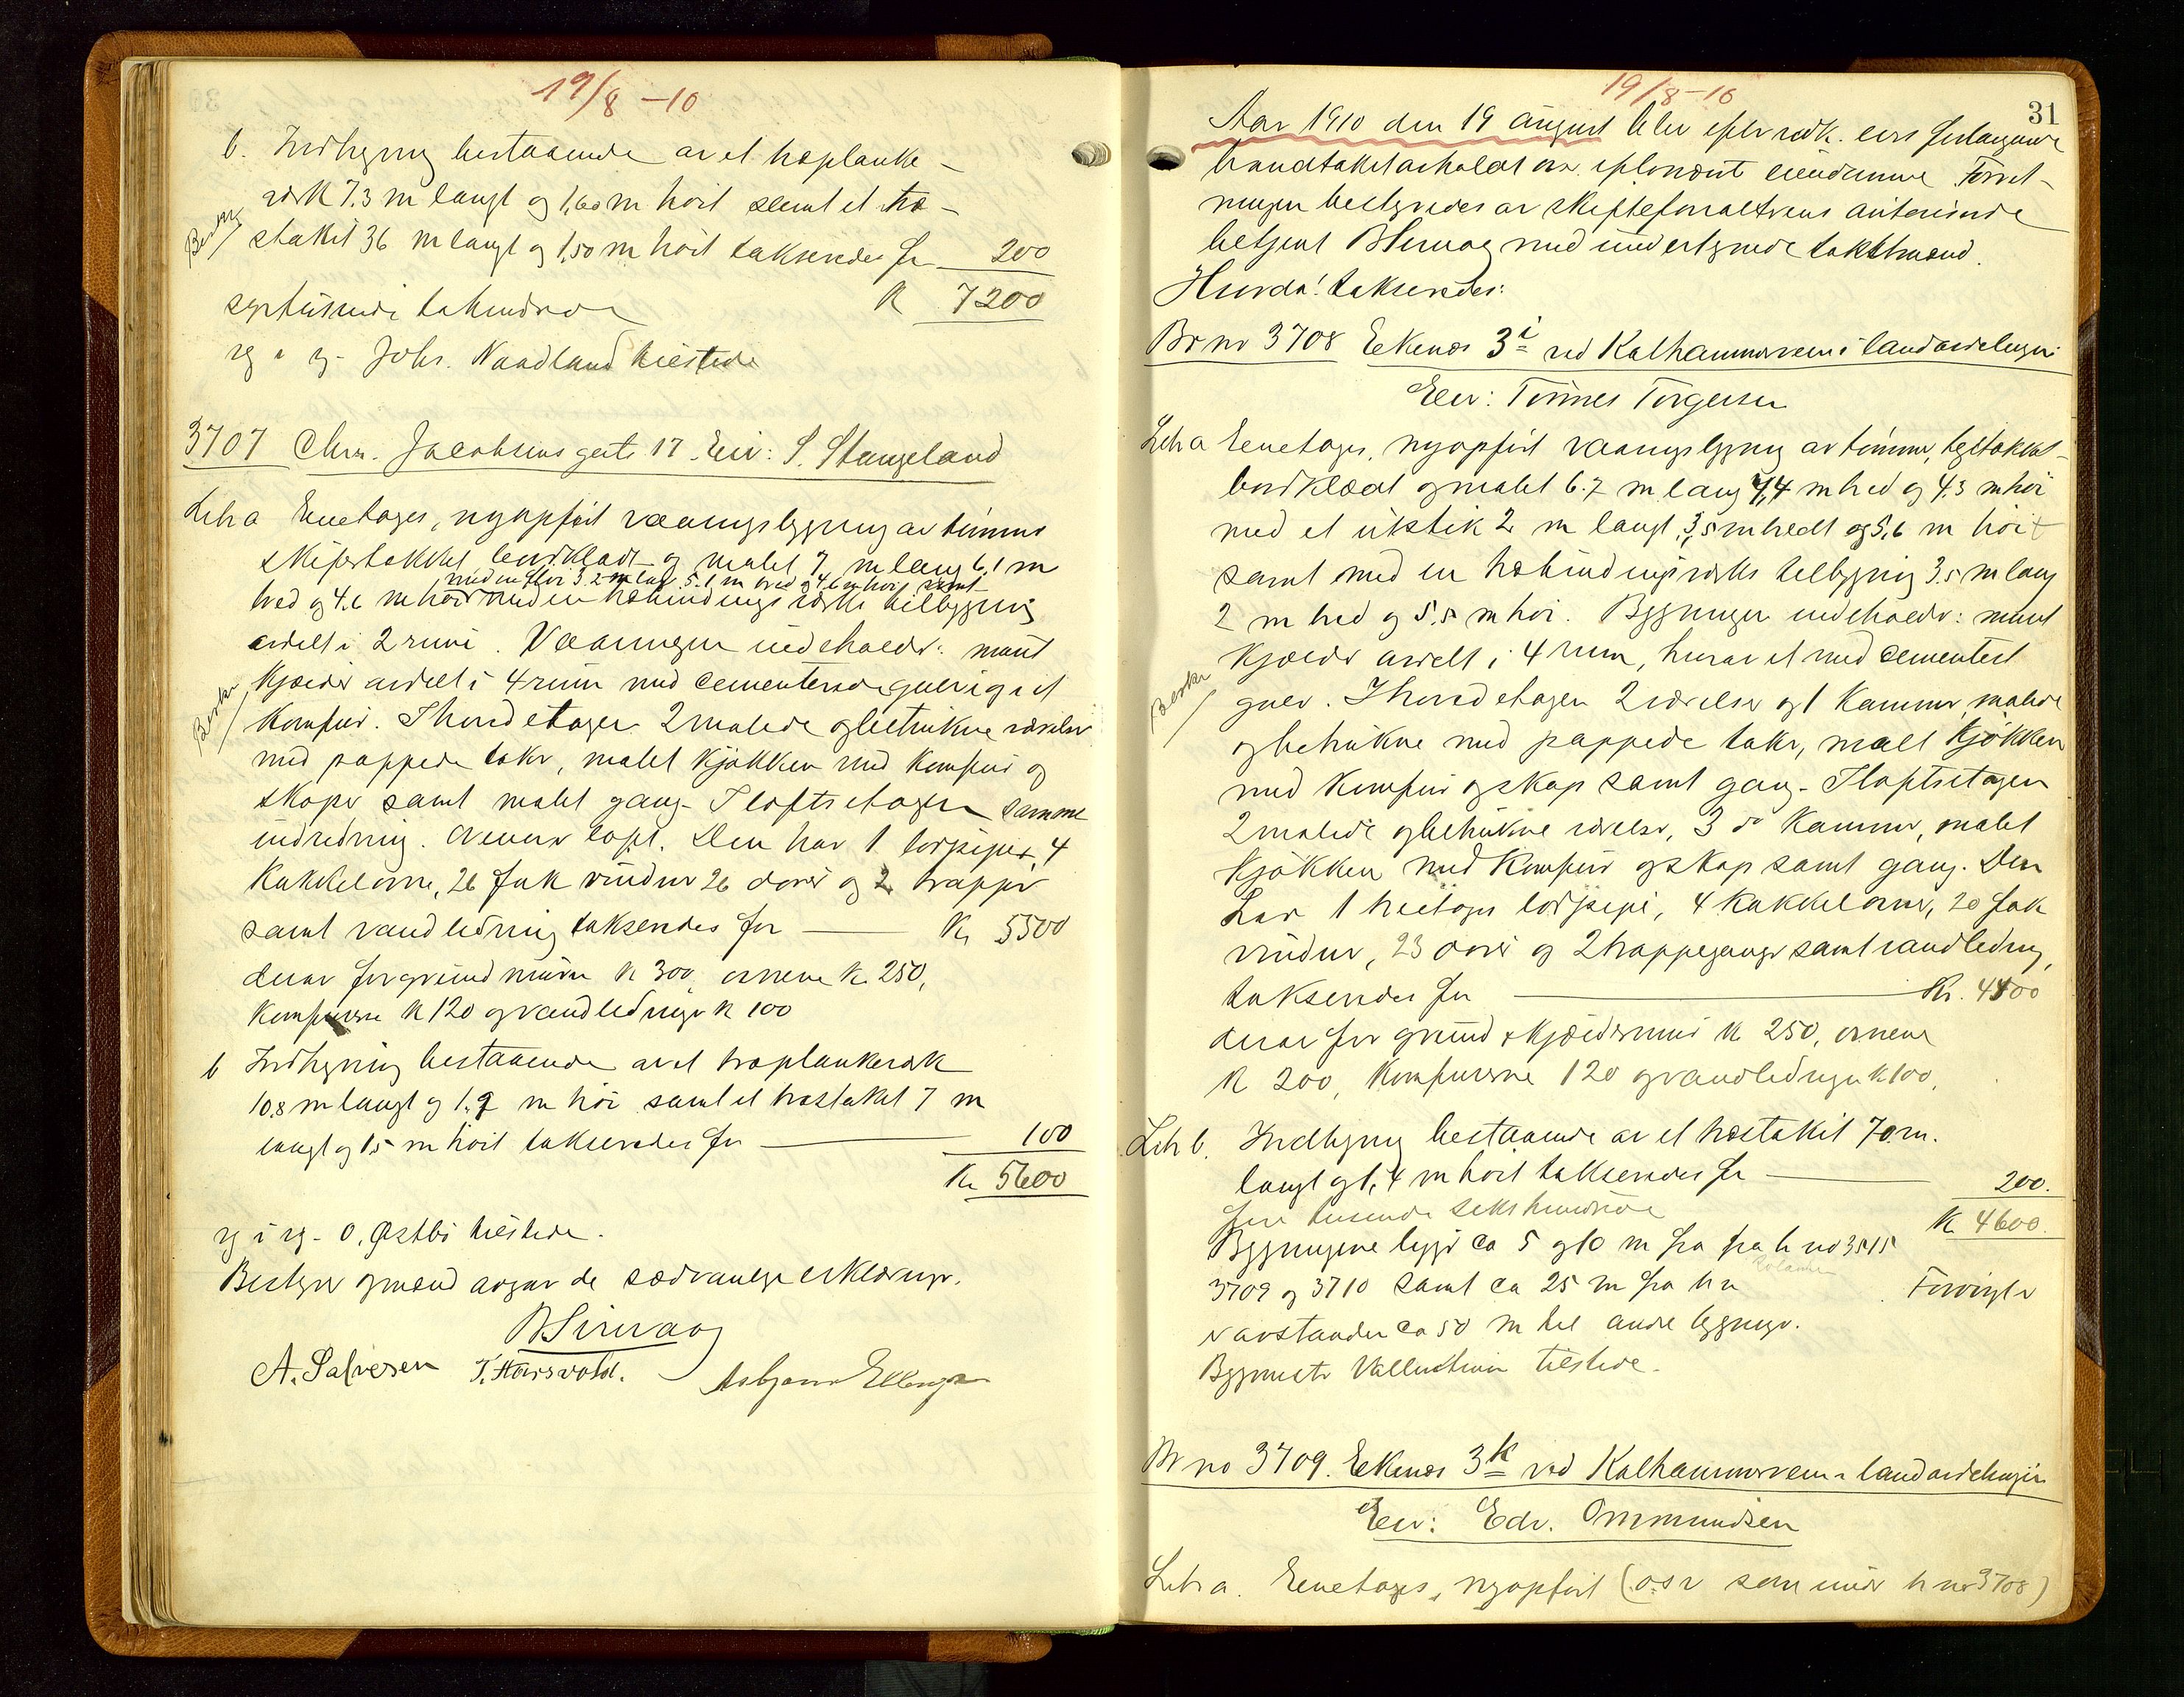 19/8 -10
b. Indhegning bestaaende av et træplanke-
verk 7.3 m langt og 1,60 m høit samt et træ-
stakit 36 m langt og 1,50 m høit takseredes for 200
syvtusinde tohundrede K 7200
Johs. Naadland tilstede
3707 Chr. Jacobsens gate 17. Eier: S. Stangeland
Litra a Enetages, nyopført vaaningsbygning av tømmer
skifertækket, bordklædt og malet 7 m lang 6,1 m
med en fløi 3,2 m lang 5.1 m bred og 4,6 m høi samt
bred og 4.6 m høi med en træbindingsverks tilbygning
avdelt i 2 rum. Vaaningen indeholder: muret
kjælder avdelt i 4 rum med cementerede gulv og i et
komfur. I hovedetagen 2 malede og betrukne værelser
med pappede taker, malet kjøkken med komfur og
skaper samt malet gang. I loftsetagen samme
indredning. Øverst loft. Den har 1 torvpipe, 4
kakkelovne, 26 fak vinduer 26 dører og 2 trapper
samt vandledning takseredes for Kr 5500
derav for grundmuren K 300, ovnene K 250,
Komfurene K 120 og vandledningen K 100
b Indhegning bestaaende av et træplankeverk
10,8 m langt og 1,9 m høi samt et træstakit 7 m
langt og 1,5 m høit takseredes for 100
Kr 5600
O. Østbø tilstede.
Bestyrer og mænd avgav de sædvanlige erklæringer.
A. Salvesen T. Hausvold. Asbjørn Ellingsen
19/8 -10
31
Aar 1910 den 19 august blev efter vedk. eiers forlangende
brandtakst avholdt over efternævnte eiendomme. Forret-
ningen bestyredes av skifteforvalterens autoriserede
betjent med undertegnede takstmænd.
Hvorda! takseredes:
Br no 3708 Eekenæs 3 i ved Kalhammerveien i landavdelingen
Eier: Tønnes Torgersen
Litra a Enetages, nyopført vaaningsbygning av tømmer, teglstækket
bordklædt og malet 6.7 m lang 7,4 m bred og 4,3 m høi
med et utstik 2 m langt, 3,5 m bredt og 5,6 m høit
samt med en træbindingsverks tilbygning 3,5 m lang
2 m bred og 5,5 m høi. Bygningen indeholder: muret
kjælder avdelt i 4 rum, hvorav et med cementert
gulv. I hovedetagen 2 værelser og 1 kammer, malede
og betrukne med pappede taker, malt kjøkken
med komfur og skap samt gang. I loftsetagen
2 malede og betrukne værelser, 3 do kammer, malet
kjøkken med komfur og skap samt gang. Den
har 1 toetages torvpipe, 4 kakkelovne, 20 fak
vinduer, 23 dører og 2 trappeganger samt vandledning,
takseredes for Kr. 4400
derav for grund & kjældermur K 250, ovnene
K 200, Komfurene 120 og vandledningen K 100,
Litr b. Indhegning bestaaende av et træstakit 70 m.
langt og 1,4 m høit takseredes for 200.
fire tusinde sekshundrede K 4600.
Bygningene ligger ca 5 og 10 m fra fra br no 3515
3709 og 3710 samt ca 25 m fra br no
avstanden ca 50 m til andre bygninger.
Bygmester tilstede.
Br no 3709. Eekenæs 3 k ved Kalhammerveien i landavdelingen
Eier: Edv. Ommundsen
Litra a. Enetages, nyopført (o.s.v. som under br no 3708)